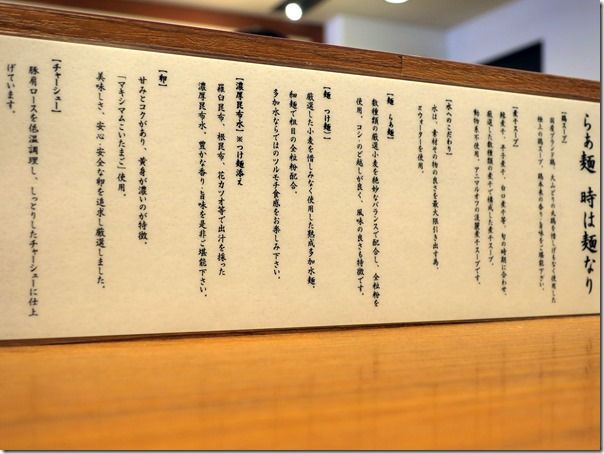 らぁ麺 時は麺なり
【鶏スープ】
国産ブランド鶏、大山どりの丸鶏を惜しげもなく使用した
極上の鶏スープ。鶏本来の香り・旨味をご堪能下さい。
【煮干スープ】
厳選した数種類の煮干で構成した煮干スープです。
動物系不使用、アニマルオフの淡麗煮干スープです。
【水へのこだわり】
水は、素材その物の良さを最大限引き出す為、
【麺 らぁ麺】
数種類の厳選小麦を絶妙なバランスで配合し、全粒粉を
使用。コシ・のど越しが良く、風味の良さも特徴です。
【麺 つけ麺】
厳選した小麦を惜しみなく使用した熟成多加水麺。
細麺で粗目の全粒粉配合。
多加水ならではのツルモチ食感をお楽しみ下さい。
【濃厚昆布水】※つけ麺添え
羅臼昆布、根昆布、花カツオ等で出汁を採った
濃厚昆布水。豊かな香り・旨味を是非ご堪能下さい。
【卵】
甘みとコクがあり、黄身が濃いのが特徴。
「マキシマムこいたまご」使用。
美味しさ、安心・安全な卵を追求し厳選しました。
【チャーシュー】
豚肩ロースを低温調理し、しっとりしたチャーシューに仕上
げています。